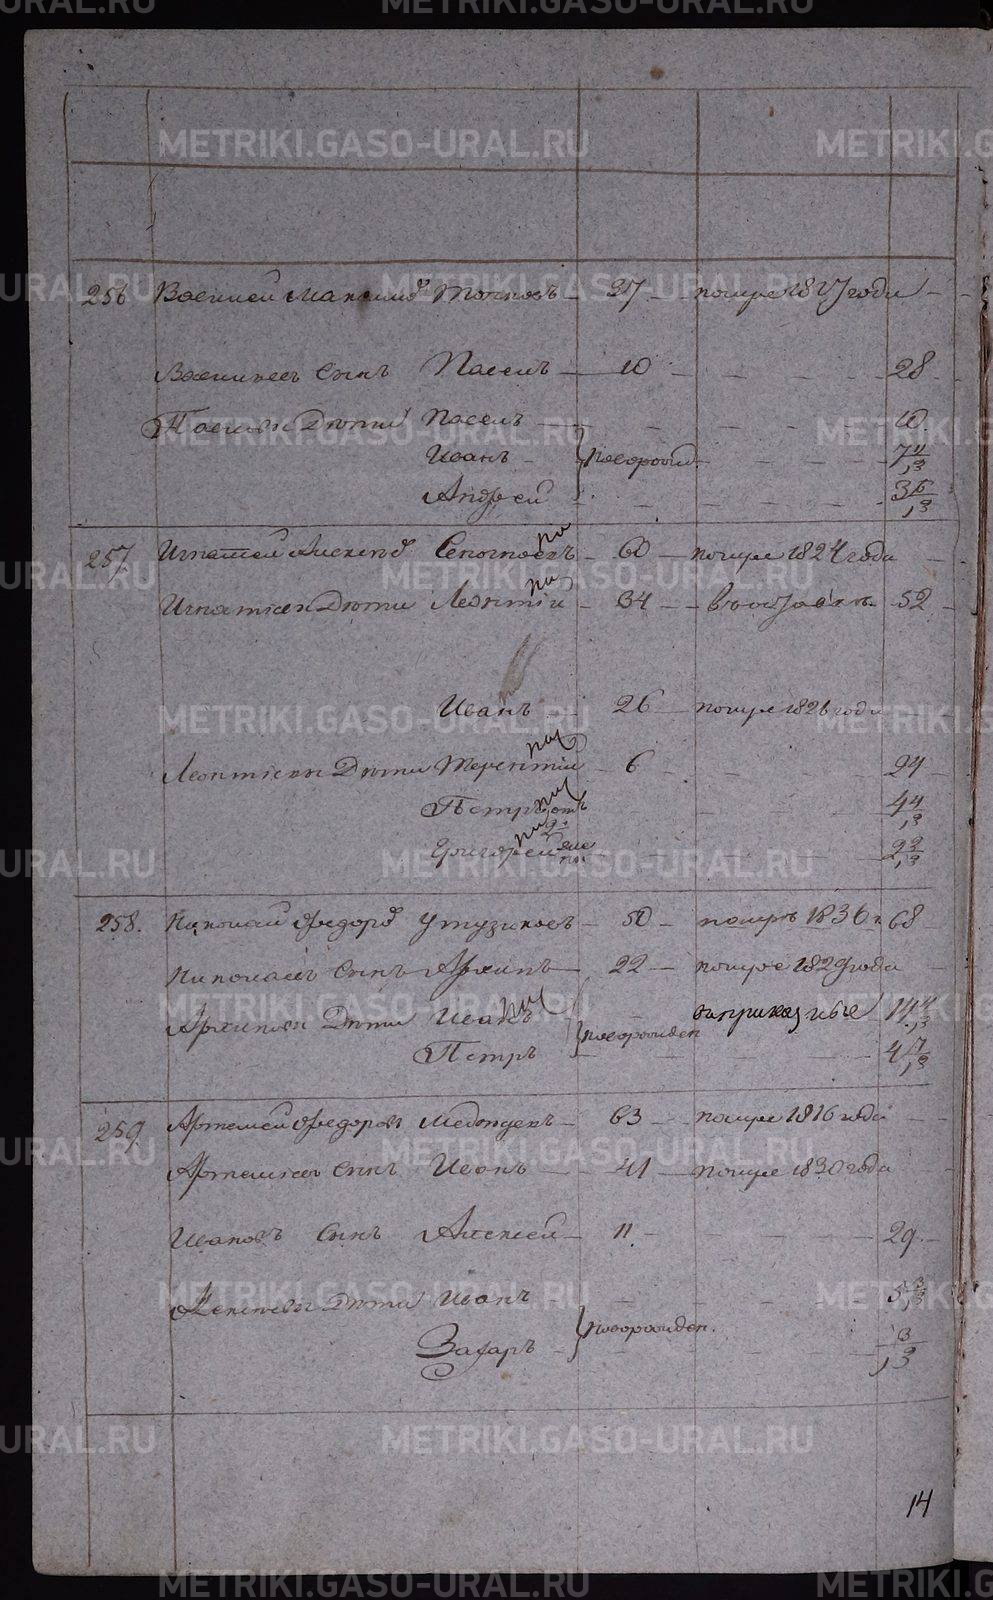 METRIKI.GASO-URAL.RU
256 Василей Максимов 37 помре 1827 года
Васильевъ Сынъ Павелъ 10 28
Павловы Дети Павелъ 10.
Иванъ новорожд. 7 4/13
Андрей 3 6/13
257. Игнатей Александ 60 помре 1824 года
Игнатьевы Дети Леонтии 34 52
Иванъ 26 помре 1826 года
Леонтьевы Дети Терентии 6 24
Петръ 4 4/13
Григорей 2 2/13
258. Николай Федоров Утузиковъ 50 помръ 1836 г 68
Николаевъ Сынъ Архипъ 22 помре 1829 года
Архиповы Дети Иванъ новорожден заприказные 14 4/13
Петръ 4 7/13
259. Артемей Федоровъ Медведевъ 63 помре 1816 года
Артемьевъ Сынъ Иванъ 41 помре 1830 года
Ивановъ Сынъ Алексей 11. 29.
Алексеевы Дети Иванъ новорожден. 5 3/13
Захаръ 3/13
14